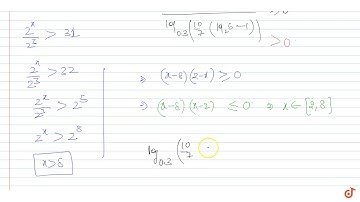 2^x/2^3 > 31
2^x/2^3 > 32
2^x/2^3 > 2^5
2^x > 2^8
x>8
log_0.3 (10/7 (log_2 5 - 1)) > 0
⇒ (x-8)(2-x) ≥ 0
⇒ (x-8)(x-2) ≤ 0 ⇒ x ∈ [2,8]
log_0.3 (10/7